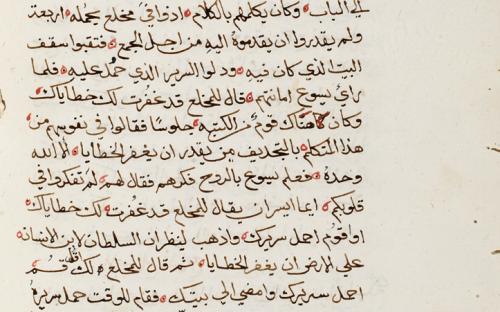 الي الباب • وكان يكلمهم بالكلام • اذ وافي مخلع يحمله اربعة
ولم يقدروا ان يقدموه اليه من اجل الجمع • فنقبوا سقف
البيت الذي كان فيه • ودلوا السرير الذي حمل عليه • فلما
راي يسوع امانتهم • قال للمخلع قد غفرت لك خطاياك
وكان هناك قوم من الكتبه جلوسا فقالوا في نفوسهم من
هذا المتكلم بالتجديف من يقدر ان يغفر الخطايا الا الله
وحده • فعلم يسوع بالروح فكرهم فقال لهم لم تفكروا في
قلوبكم • ايما ايسر ان يقال للمخلع قد غفرت لك خطاياك
او اقوم احمل سريرك • واذهب لينظر ان السلطان لابن الانسان
علي الارض ان يغفر الخطايا • ثم قال للمخلع لك اقول قم
احمل سريرك وامضي الي بيتك • فقام للوقت حمل سريره